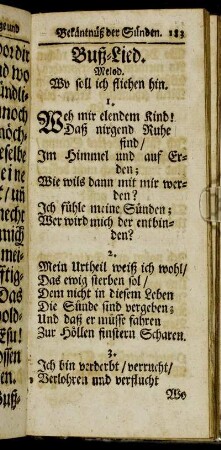 Bekäntnüß der Sünden. 183
Buß-Lied.
Melod.
Wo soll ich fliehen hin.
1.
Weh mir elendem Kind!
Daß nirgend Ruhe
find/
Im Himmel und auf Er-
den;
Wie wils dann mit mir wer-
den?
Ich fühle meine Sünden;
Wer wird mich der entbin-
den?
2.
Mein Urtheil weiß ich wohl/
Das ewig sterben sol/
Dem nicht in diesem Leben
Die Sünde sind vergeben;
Und daß er müsse fahren
Zur Höllen finstern Scharen.
3.
Ich bin verderbt/verrucht/
Verlohren und verflucht
Wo